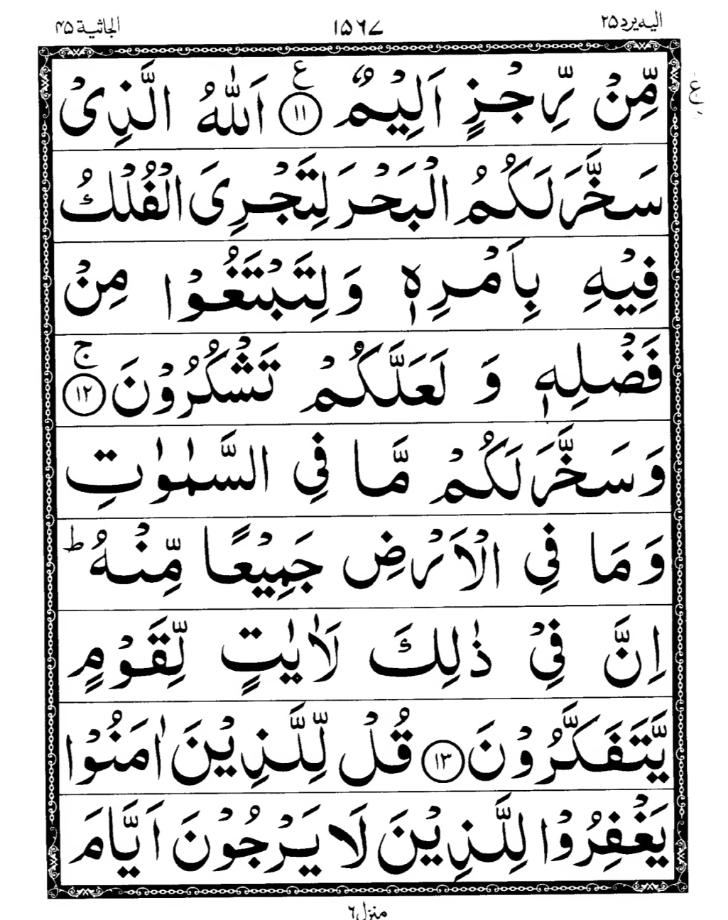 الجاثية ۴۵ ۱۵۶۷ اليه يرد ۲۵
مِّنْ رِّجْزٍ اَلِيْمٌ ۟ع ﴿۱۱﴾ اَللّٰهُ الَّذِىْ
ع
سَخَّرَ لَكُمُ الْبَحْرَ لِتَجْرِىَ الْفُلْكُ
فِيْهِ بِاَمْرِهٖ وَ لِتَبْتَغُوْا مِنْ
فَضْلِهٖ وَ لَعَلَّكُمْ تَشْكُرُوْنَ ۚ ﴿۱۲﴾
وَ سَخَّرَ لَكُمْ مَّا فِى السَّمٰوٰتِ
وَ مَا فِى الْاَرْضِ جَمِيْعًا مِّنْهُ ؕ
اِنَّ فِىْ ذٰلِكَ لَاٰيٰتٍ لِّقَوْمٍ
يَّتَفَكَّرُوْنَ ﴿۱۳﴾ قُلْ لِّلَّذِيْنَ اٰمَنُوْا
يَغْفِرُوْا لِلَّذِيْنَ لَا يَرْجُوْنَ اَيَّامَ
منزل ۶